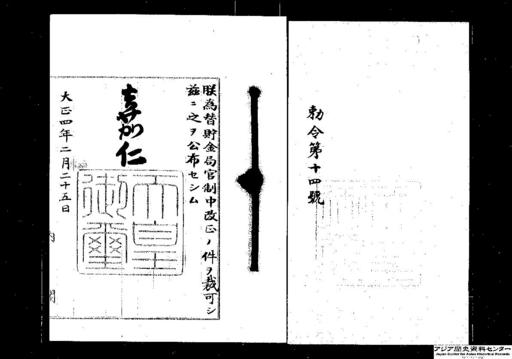 勅令第十四號
朕為替貯金局官制中改正ノ件ヲ裁可シ
茲ニ之ヲ公布セシム
嘉仁
天皇御璽
大正四年二月二十五日
内閣
アジア歴史資料センター
Japan Center for Asian Historical Records